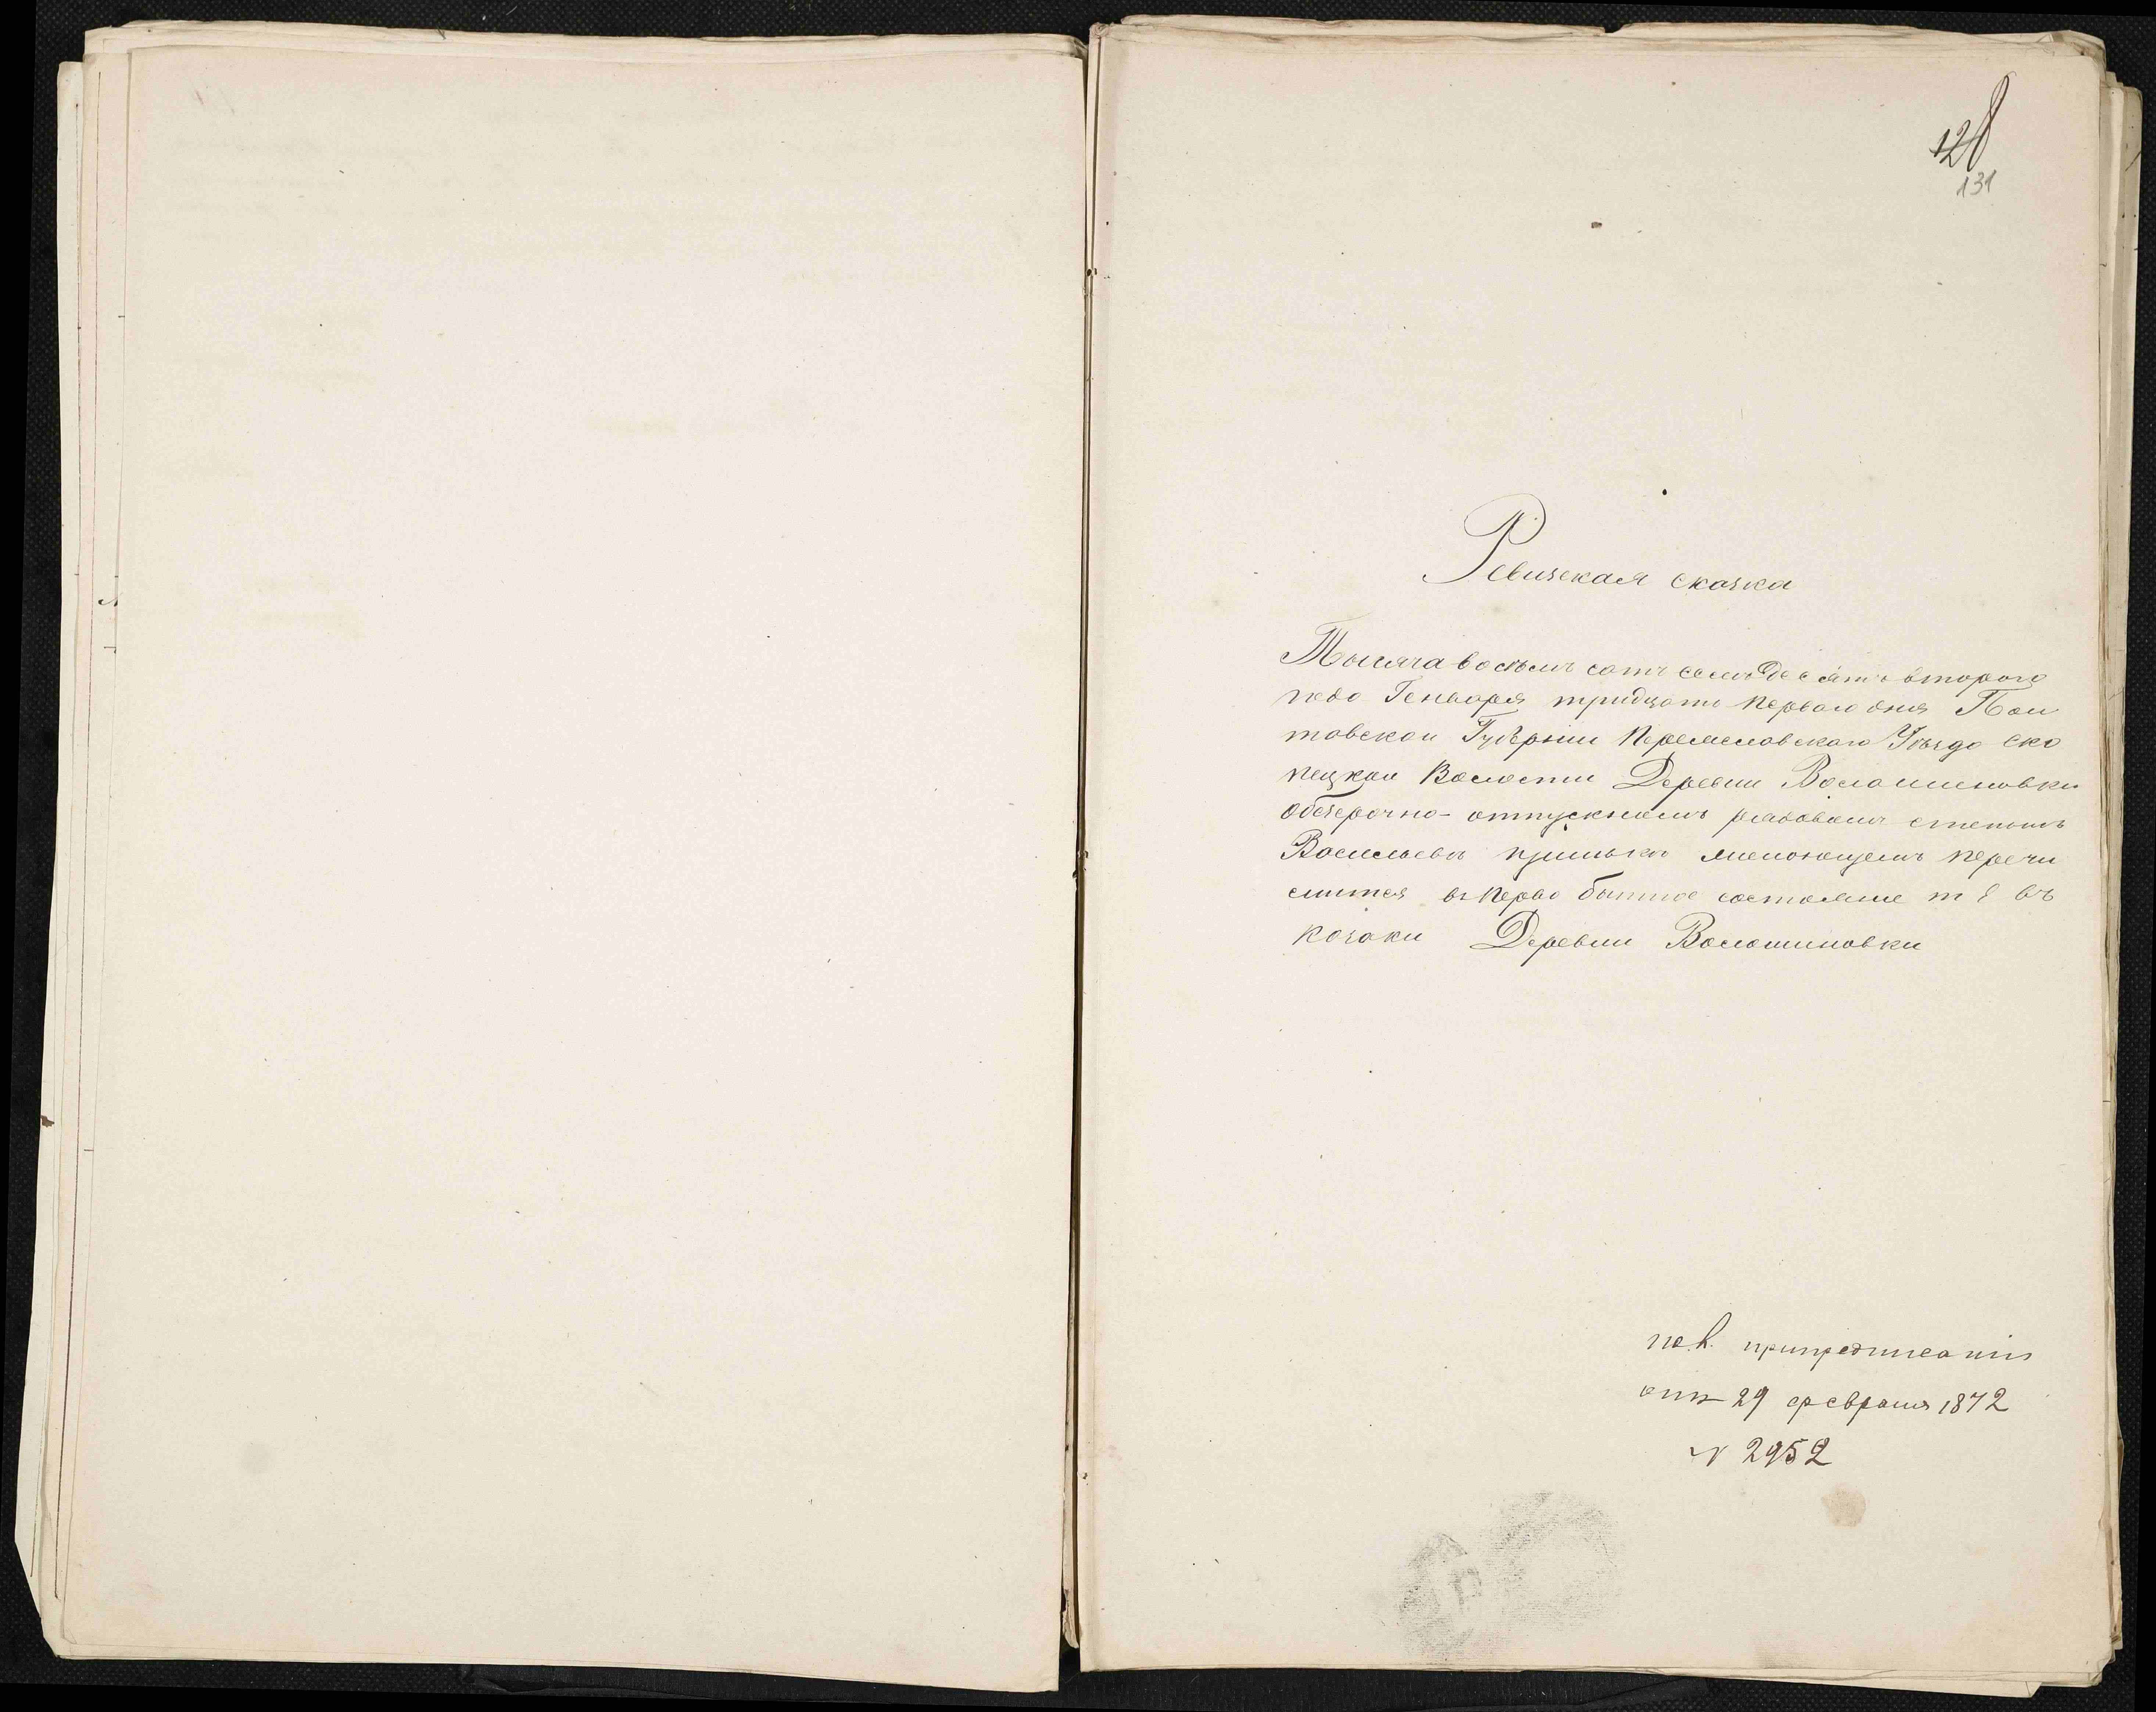 128
131
Ревизская сказка
Тысяча восемь сотъ семьдесятъ второго
года Генваря тридцать первого дня Пол
тавской Губернии Переяславского Уѣзда Ско
пецкой Волости Деревни Волошиновки
о безсрочно-отпускномъ рядовомъ степанѣ
Васильевѣ желающемъ перечи
слится въ перво бытное состояние т е въ
козаки Деревни Волошиновки
при предписании
отъ 29 февраля 1872
N 2952